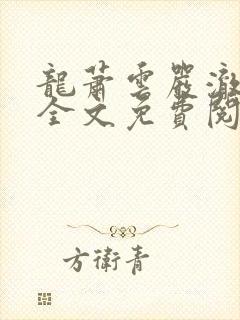 龍蕭雲嚴澈
全文免費閱
方衛青